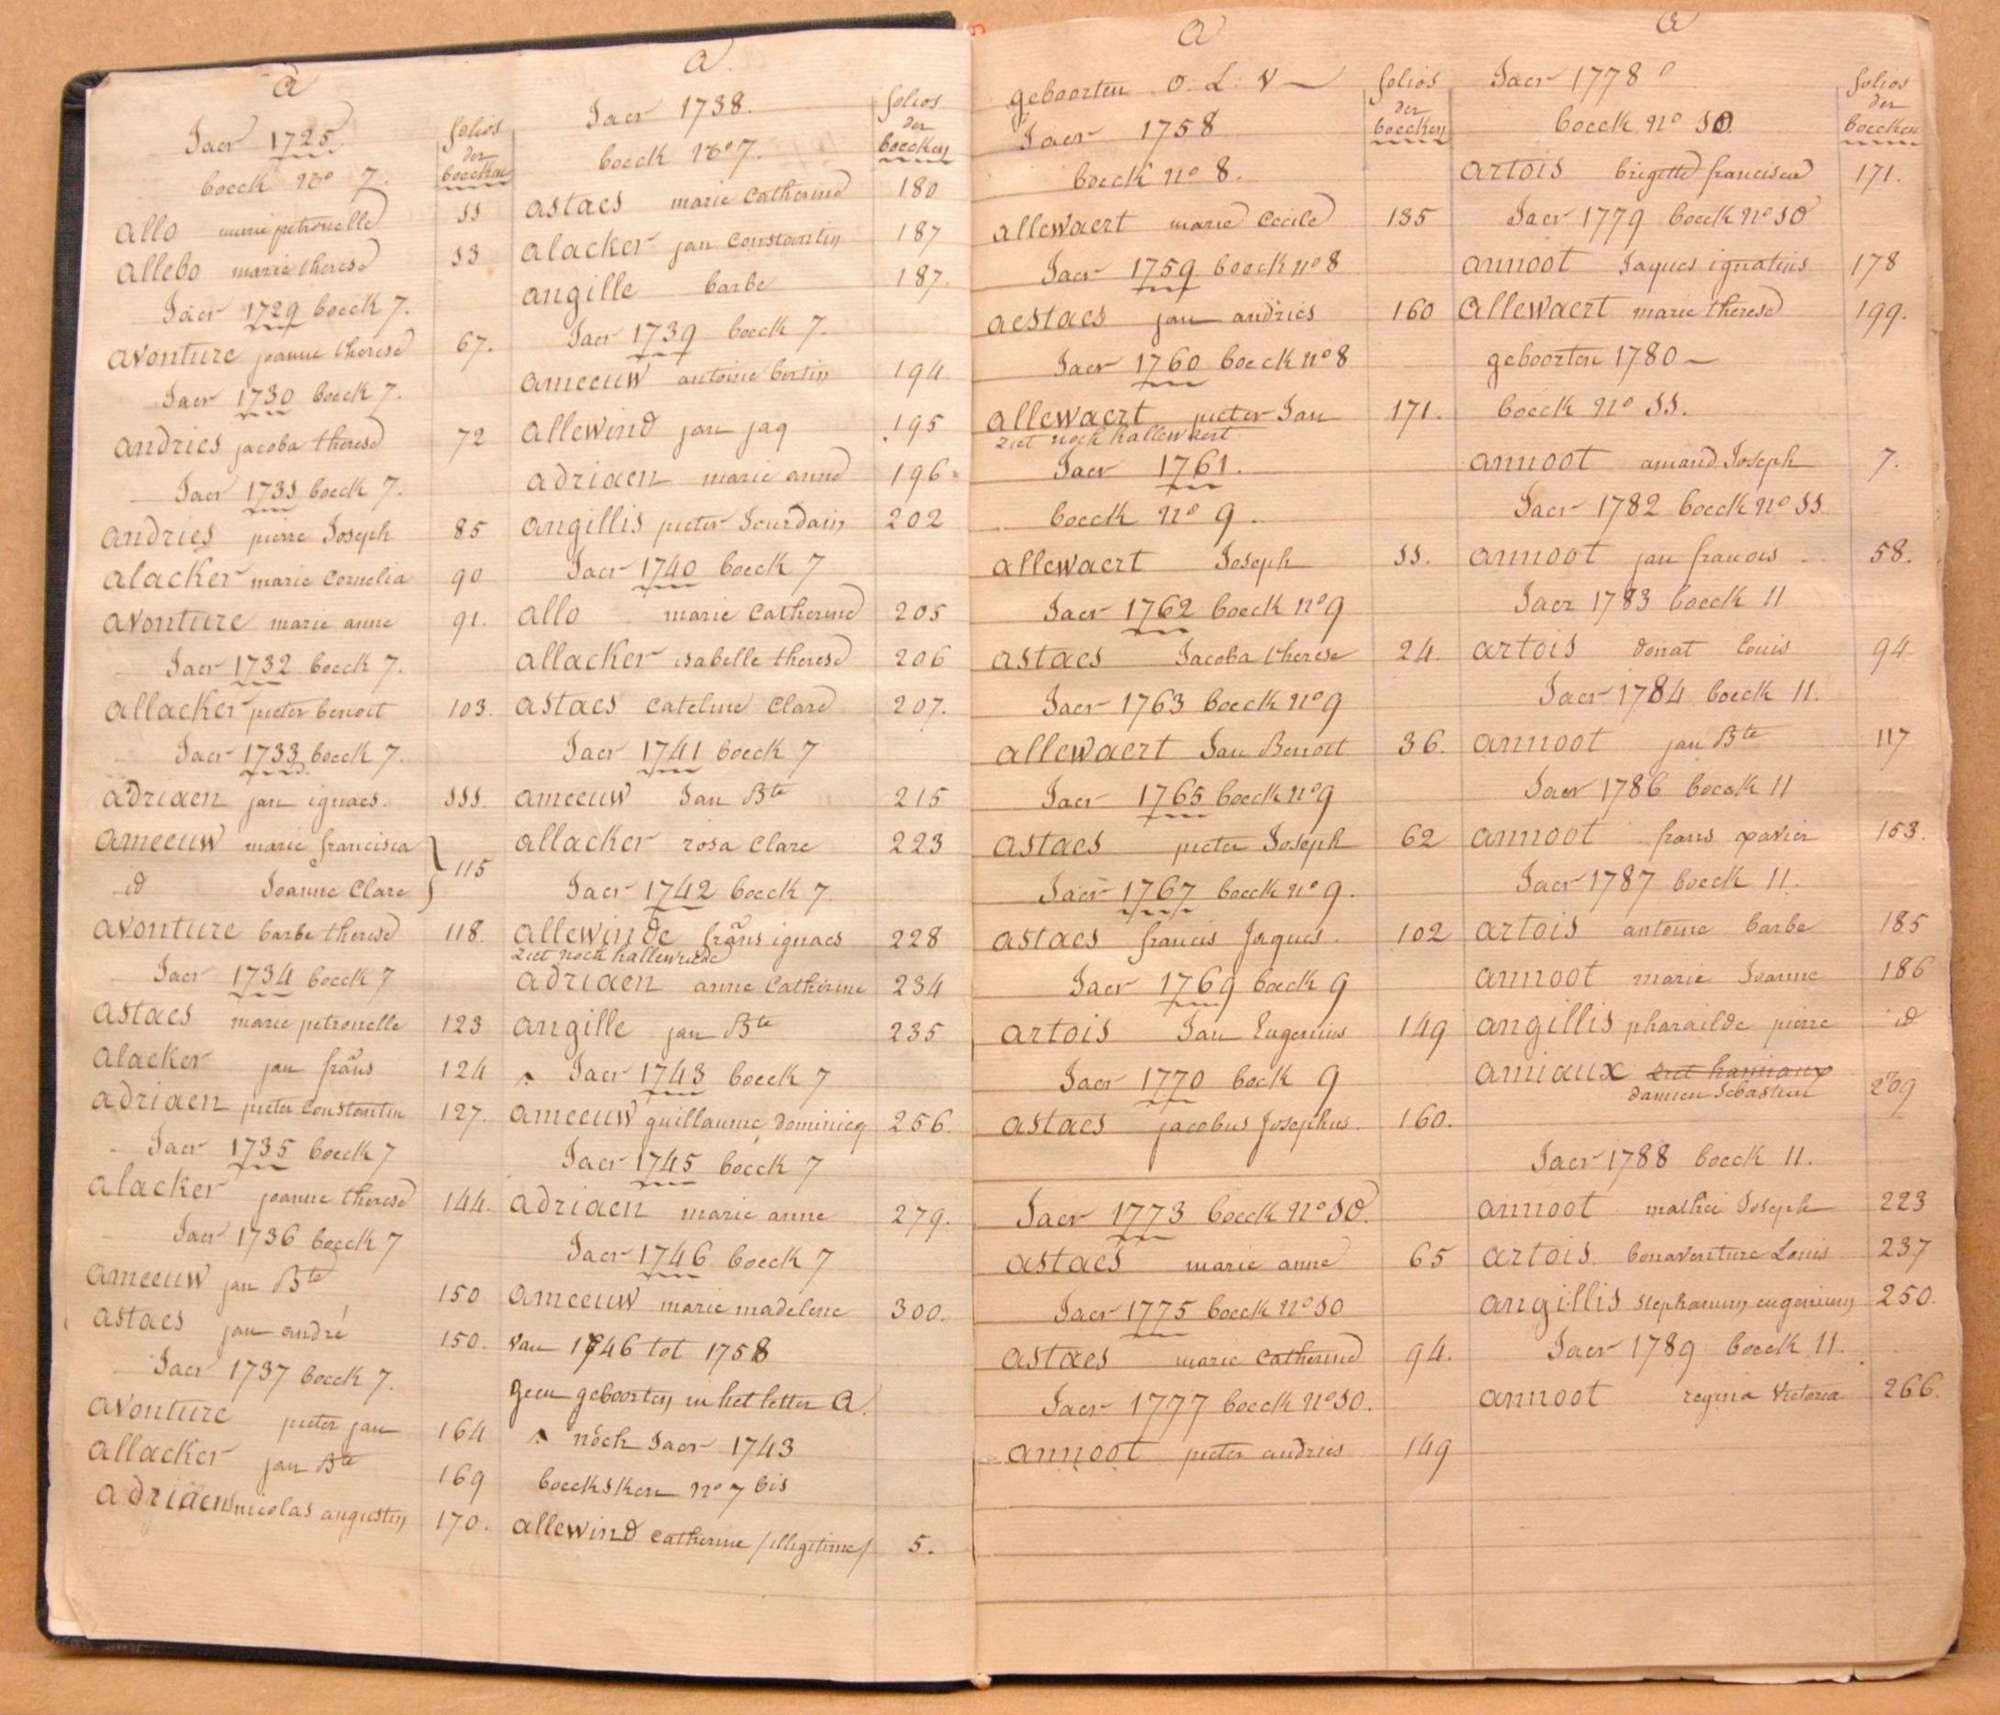 a
Jaer 1725
folios
der
boecken
boeck No 7.
allo marie petronelle 11
allebo marie therese 13
Jaer 1729 boeck 7.
avonture joanne therese 67.
Jaer 1730 boeck 7.
andries jacoba therese 72
Jaer 1731 boeck 7.
andries pierre Joseph 85
alacker marie Cornelia 90
avonture marie anne 91.
Jaer 1732 boeck 7.
allacker pieter benoit 103.
Jaer 1733 boeck 7.
adriaen jan ignaes. 111.
ameeuw marie francisca
id Joanne Clare } 115
avonture barbe therese 118.
Jaer 1734 boeck 7
astaes marie petronelle 123
alacker jan frans 124
adriaen pieter Constantin 127.
Jaer 1735 boeck 7
alacker joanne therese 144.
Jaer 1736 boeck 7
ameeuw jan Bte 150
astaes jan andré 150.
Jaer 1737 boeck 7.
avonture pieter jan 164
allacker jan Bte 169
adriaens nicolas augustin 170.
a
Jaer 1738.
folios
der
boecken
boeck No 7.
astaes marie Catherine 180
alacker jan Constantin 187
angille barbe 187.
Jaer 1739 boeck 7.
ameeuw antoine bertin 194
allewind jan jaq 195
adriaen marie anne 196
angillis pieter Jourdain 202
Jaer 1740 boeck 7
allo marie Catherine 205
allacker isabelle therese 206
astaes Cateline Clare 207.
Jaer 1741 boeck 7
ameeuw Jan Bte 215
allacker rosa Clare 223
Jaer 1742 boeck 7.
allewinde frans ignaes 228
ziet noch hallewinde
adriaen anne Catherine 234
angille jan Bte 235
Jaer 1743 boeck 7
ameeuw guillaume dominicq 256.
Jaer 1745 boeck 7
adriaen marie anne 279.
Jaer 1746 boeck 7
ameeuw marie madelene 300.
van 1746 tot 1758
geen geboorten in het letter a.
noch Jaer 1743
boecksken no 7 bis
allewind Catherine /illigitime/ 5.
a
geboorten O. L. V
folios
der
boecken
Jaer 1758
boeck no 8.
allewaert marie Cecile 135
Jaer 1759 boeck no 8
aestaes jan andries 160
Jaer 1760 boeck no 8
allewaert pieter Jan 171.
ziet noch hallewaert
Jaer 1761.
boeck no 9.
allewaert Joseph 11.
Jaer 1762 boeck no 9
astaes Jacoba therese 24.
Jaer 1763 boeck no 9
allewaert Jan Benoit 36.
Jaer 1765 boeck no 9
astaes pieter Joseph 62
Jaer 1767 boeck no 9.
astaes francis Jaques. 102
Jaer 1769 boeck 9
artois Jan Eugenius 149
Jaer 1770 boek 9
astaes jacobus Josephus. 160.
Jaer 1773 boeck no 10.
astaes marie anne 65
Jaer 1775 boeck no 10
astaes marie Catherine 94.
Jaer 1777 boeck no 10.
annoot pieter andries 149
a
Jaer 1778
folios
der
boecken
boeck no 10.
artois brigitte francisca 171.
Jaer 1779 boeck no 10
annoot Jaques ignatius 178
allewaert marie therese 199.
geboorten 1780
boeck no 11.
annoot amand Joseph 7.
Jaer 1782 boeck no 11
annoot jan francis 58.
Jaer 1783 boeck 11
artois donat louis 94
Jaer 1784 boeck 11.
annoot jan Bte 117
Jaer 1786 boeck 11
annoot frans xavier 153.
Jaer 1787 boeck 11.
artois antoine barbe 185
annoot marie Joanne 186
angillis pharailde pierre id
amiaux ziet hamiaux
damien Sebastien 209
Jaer 1788 boeck 11.
annoot mathei Joseph 223
artois bonaventure Louis 237
angillis Stephanum eugenium 250.
Jaer 1789 boeck 11.
annoot regina victoria 266.